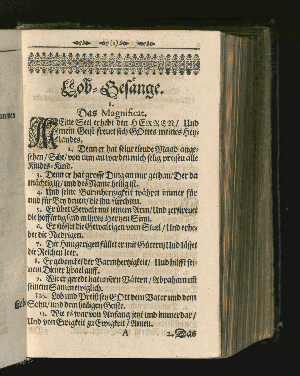 (1)
Lob-Gesänge.
1.
Das Magnificat.
MEine Seel erhebt den HERREN/ Und
mein Geist freuet sich GOttes meines Hey-
landes.
2. Denn er hat seine elende Magd ange-
sehen/ Sihe/ von nun an werden mich selig preisen alle
Kindes-Kind.
3. Denn er hat grosse Ding an mir gethan/ Der da
mächtig ist/ und des Name heilig ist.
4. Und seine Barmhertzigkeit währet immer für
und für Bey denen/ die ihn fürchten.
5. Er übet Gewalt mit seinem Arm/ Und zerstreuet
die hoffärtig sind in ihres Hertzen Sinn.
6. Er stösst die Gewaltigen vom Stuel/ Und erhe-
bet die Niedrigen.
7. Die Hungerigen füllet er mit Gütern/ Und lässet
der Reichen leer.
8. Er gedencket der Barmhertzigkeit/ Und hilfft sei-
nem Diener Israel auff.
9. Wie er geredt hat unsern Vätern/ Abraham uñ
seinem Samen ewiglich.
10. Lob und Preiß sey GOtt dem Vater und dem
Sohn/ und dem heiligen Geiste.
11. Wie es war von Anfang jetzt und immerdar/
Und von Ewigkeit zu Ewigkeit/ Amen.
A 2. Das